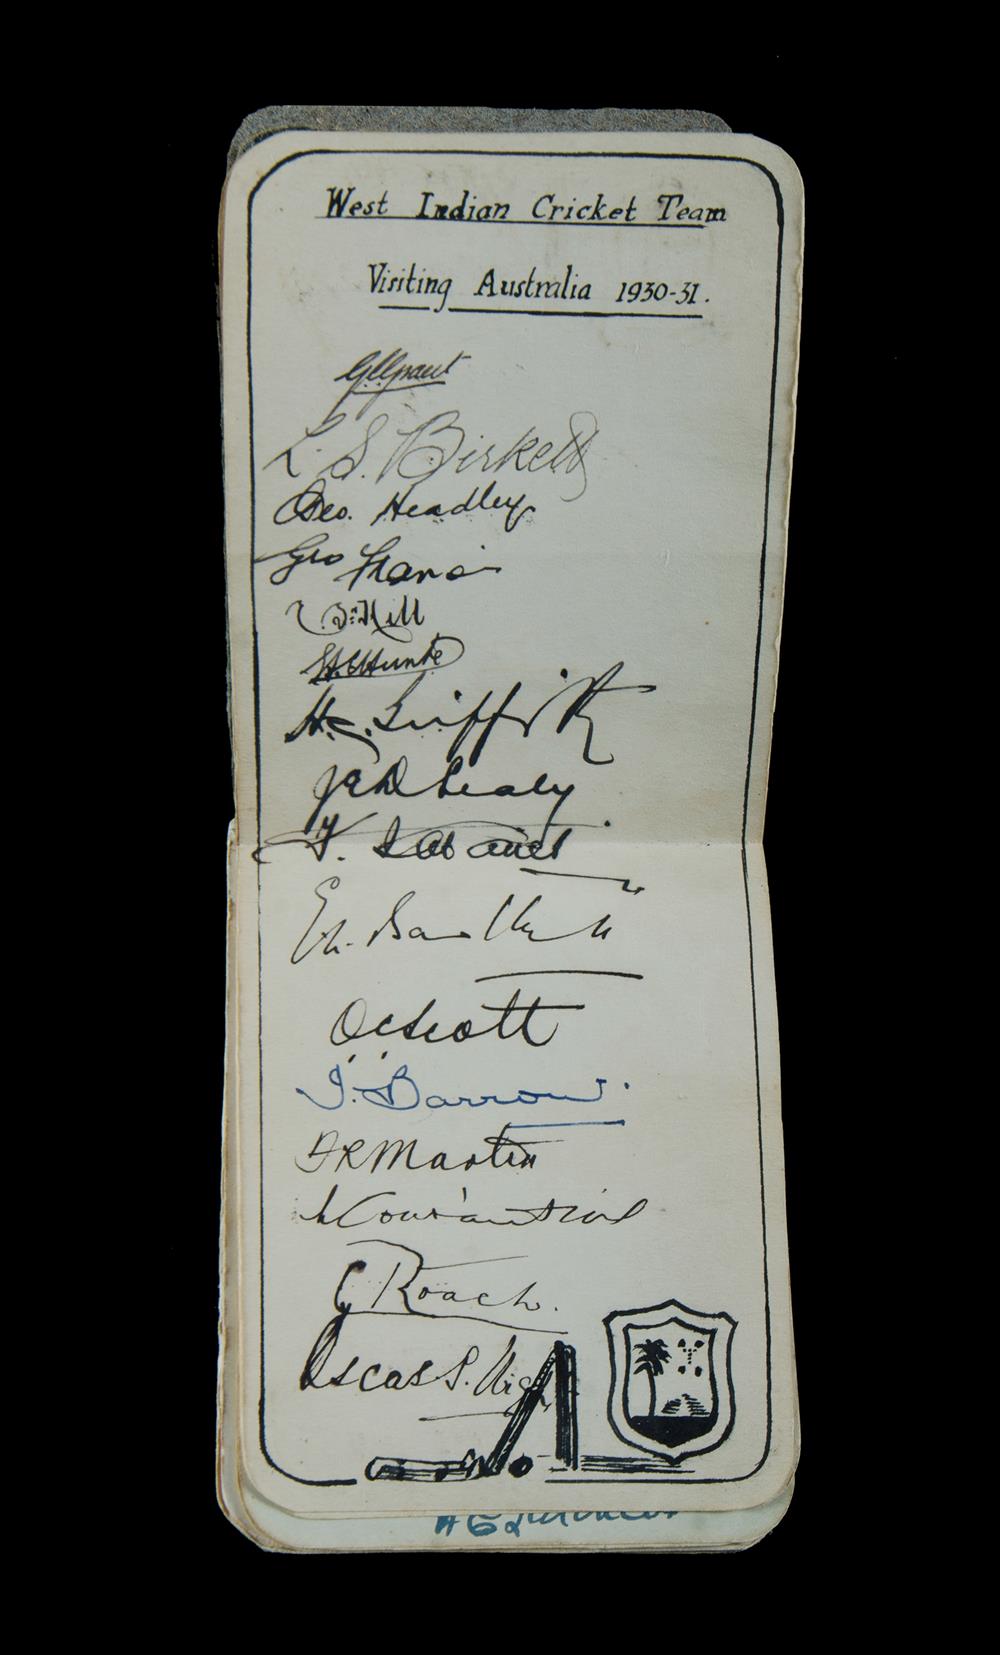 West Indian Cricket Team
Visiting Australia 1930-31.
G C Grant
L. S. Birkett
Geo. Headley
Geo Francis
E. L. St Hill
H. C. Griffith
J E D Sealy
F. I. de Caires
E. L. Bartlett
O C Scott
I. Barrow.
F R Martin
L N Constantine
C Roach.
Oscar S. Wight